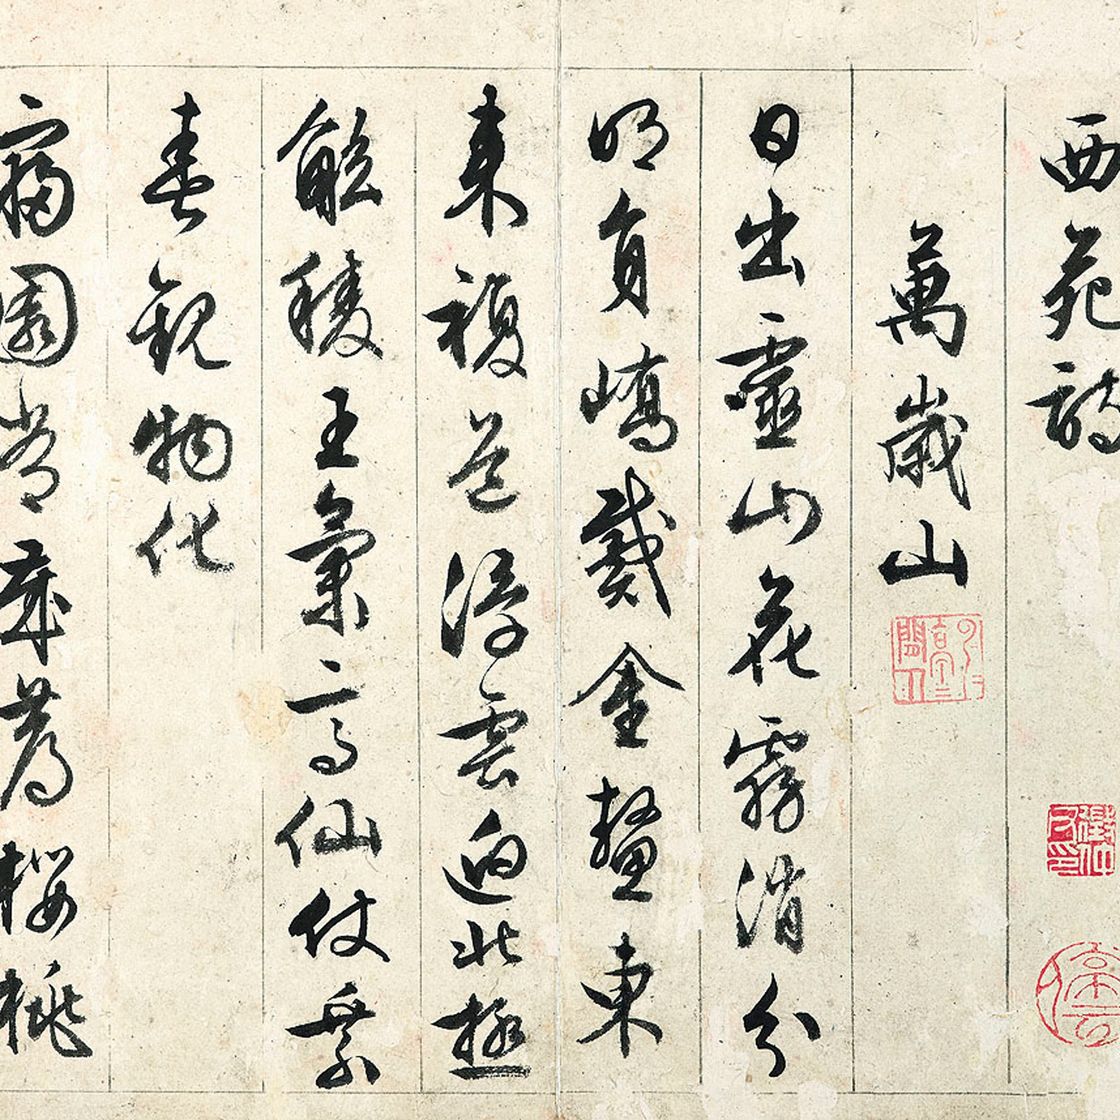 西苑詩
萬歲山
日出靈山花霧消分
明員嶠戴金鼇東
來複道浮雲迥北極
觚稜王氣高仙仗乘
春觀物化
寢園常歲薦櫻桃
停雲